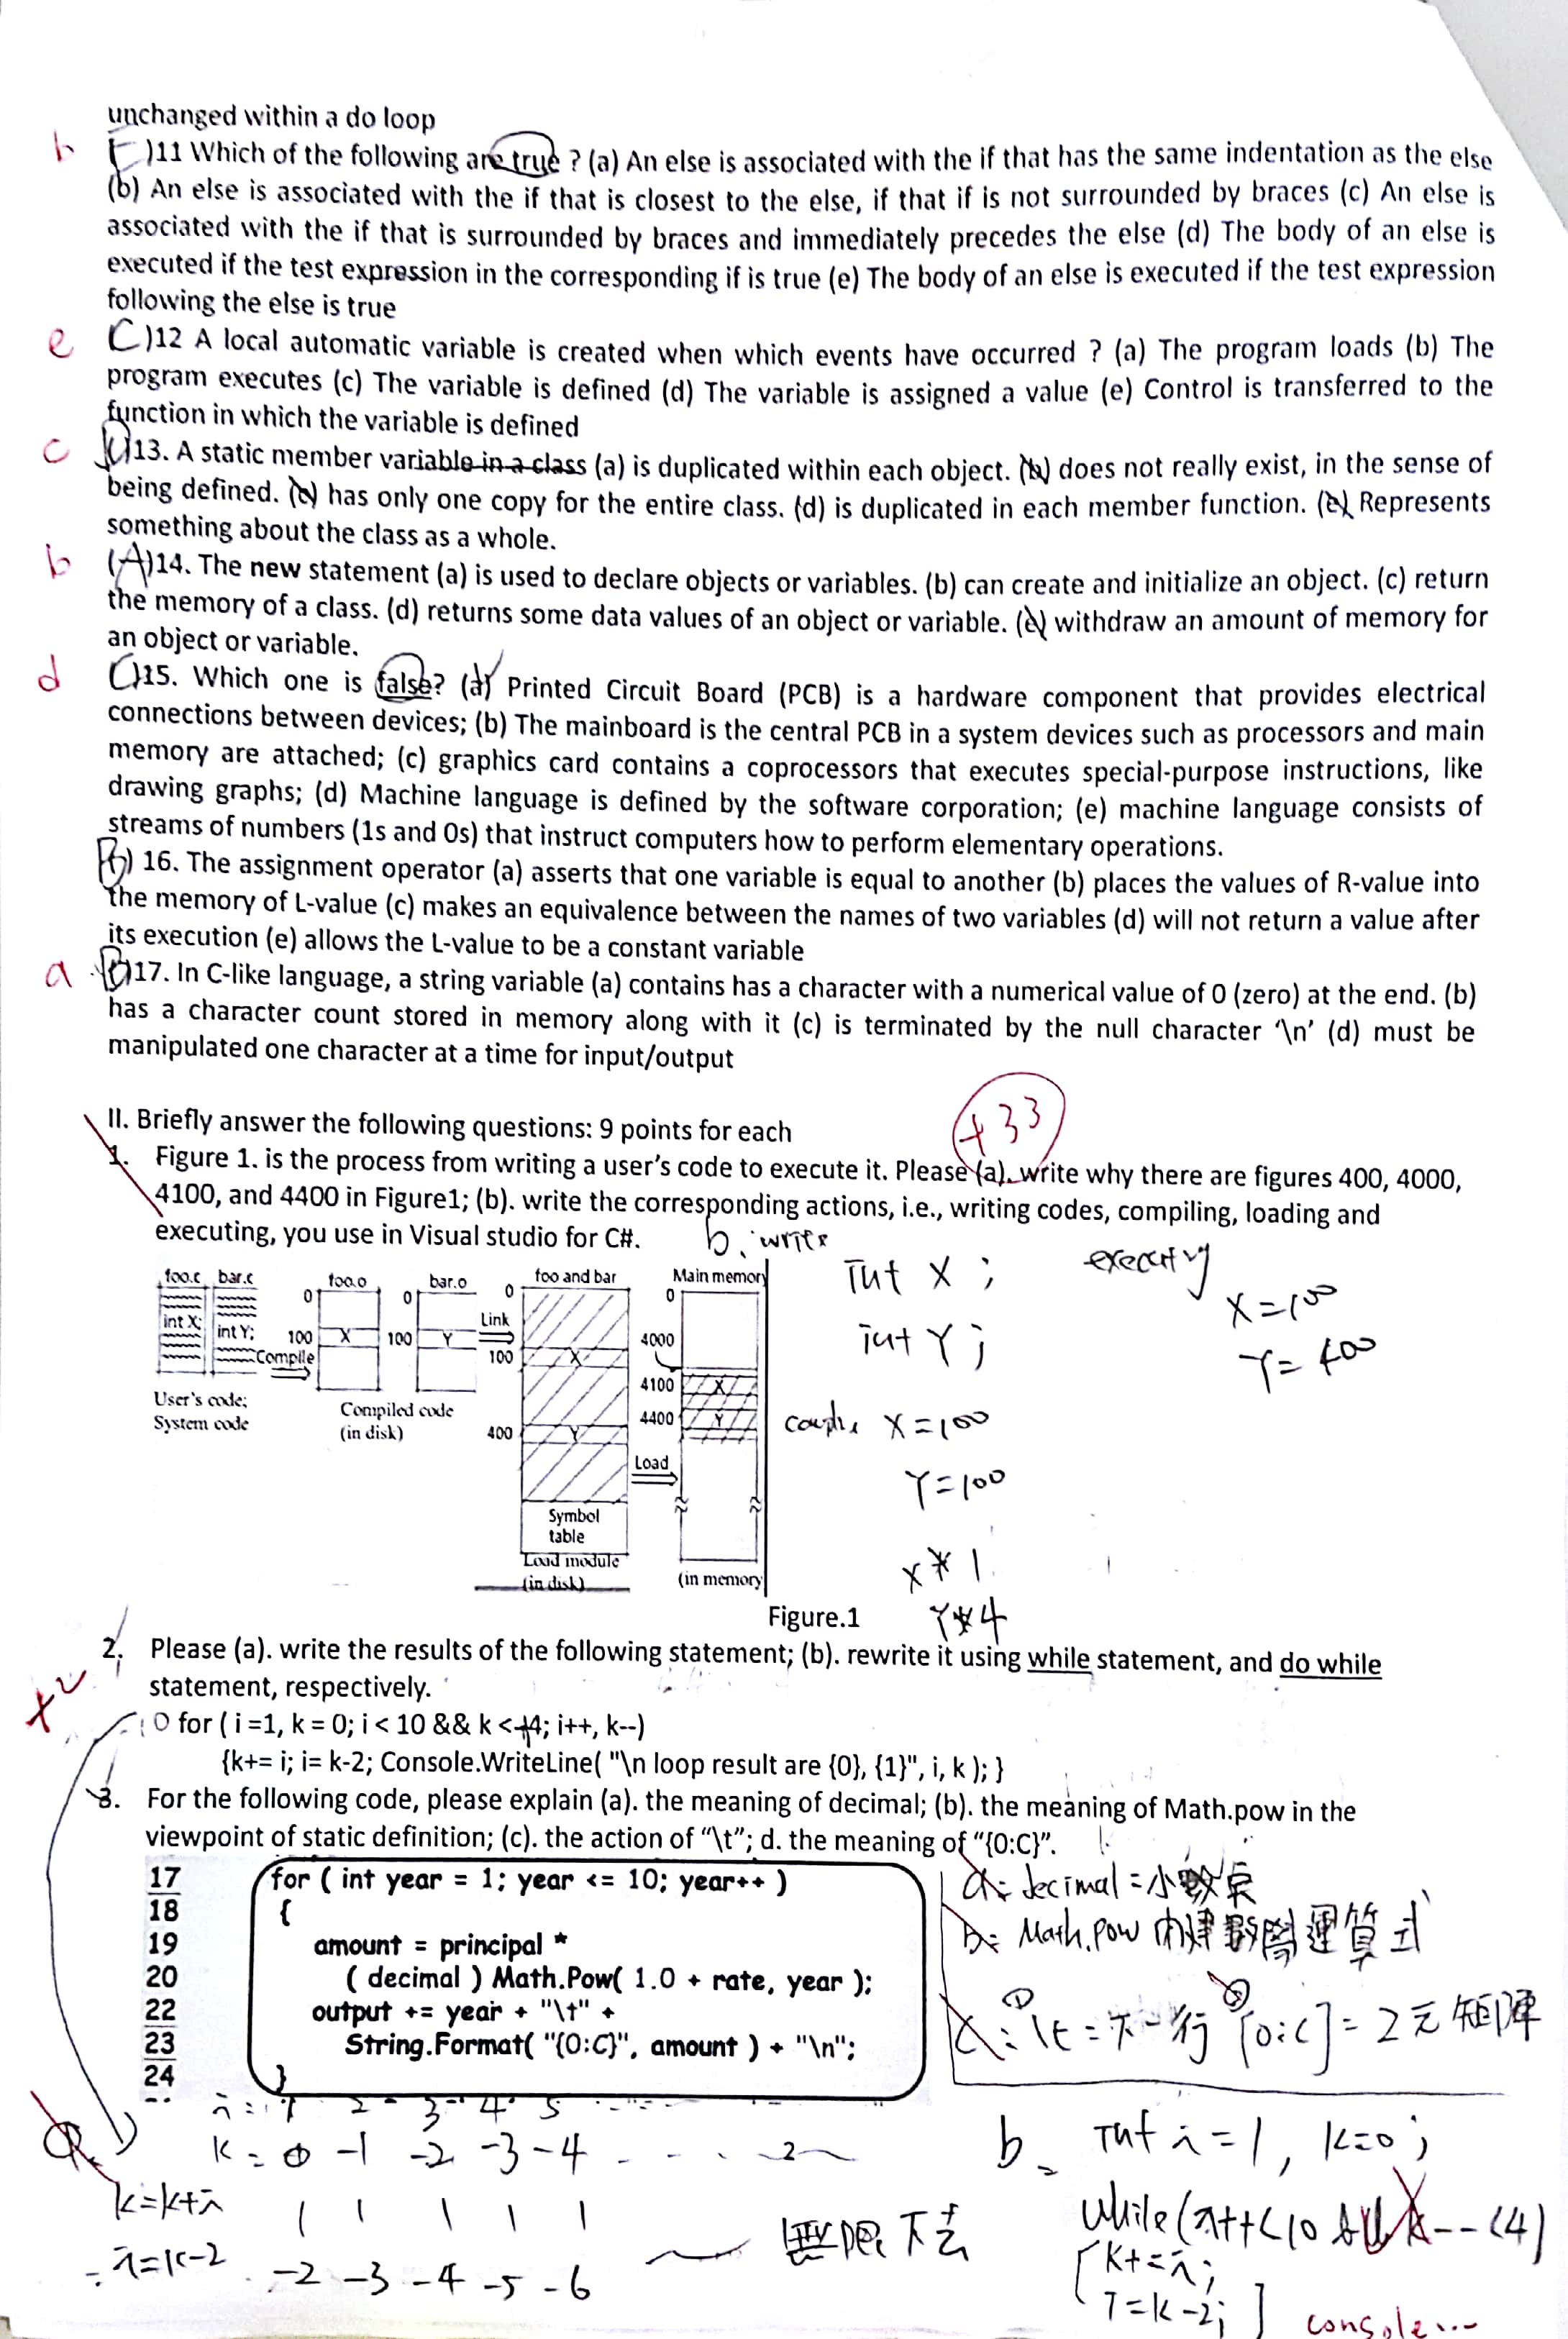 unchanged within a do loop
b ( )11 Which of the following are true ? (a) An else is associated with the if that has the same indentation as the else
(b) An else is associated with the if that is closest to the else, if that if is not surrounded by braces (c) An else is
associated with the if that is surrounded by braces and immediately precedes the else (d) The body of an else is
executed if the test expression in the corresponding if is true (e) The body of an else is executed if the test expression
following the else is true
e (C)12 A local automatic variable is created when which events have occurred ? (a) The program loads (b) The
program executes (c) The variable is defined (d) The variable is assigned a value (e) Control is transferred to the
function in which the variable is defined
c ( )13. A static member variable in a class (a) is duplicated within each object. (b) does not really exist, in the sense of
being defined. (c) has only one copy for the entire class. (d) is duplicated in each member function. (e) Represents
something about the class as a whole.
b (A)14. The new statement (a) is used to declare objects or variables. (b) can create and initialize an object. (c) return
the memory of a class. (d) returns some data values of an object or variable. (e) withdraw an amount of memory for
an object or variable.
d ( )15. Which one is false? (a) Printed Circuit Board (PCB) is a hardware component that provides electrical
connections between devices; (b) The mainboard is the central PCB in a system devices such as processors and main
memory are attached; (c) graphics card contains a coprocessors that executes special-purpose instructions, like
drawing graphs; (d) Machine language is defined by the software corporation; (e) machine language consists of
streams of numbers (1s and 0s) that instruct computers how to perform elementary operations.
(b) 16. The assignment operator (a) asserts that one variable is equal to another (b) places the values of R-value into
the memory of L-value (c) makes an equivalence between the names of two variables (d) will not return a value after
its execution (e) allows the L-value to be a constant variable
a ( )17. In C-like language, a string variable (a) contains has a character with a numerical value of 0 (zero) at the end. (b)
has a character count stored in memory along with it (c) is terminated by the null character '\n' (d) must be
manipulated one character at a time for input/output
+33
II. Briefly answer the following questions: 9 points for each
1. Figure 1. is the process from writing a user's code to execute it. Please (a). write why there are figures 400, 4000,
4100, and 4400 in Figure1; (b). write the corresponding actions, i.e., writing codes, compiling, loading and
executing, you use in Visual studio for C#.
b. write
Int X ;
int Y ;
X=100
Y=100
X*1
Y*4
X=100
Y=400
foo.c bar.c foo.o bar.o foo and bar Main memory
0 0 0 0
int X; int Y;
100 X 100 Y
Compile
Link
100 X
400 Y
4000
4100 X
4400 Y
Load
User's code;
System code
Compiled code
(in disk)
Symbol
table
Load module
(in disk)
(in memory
Figure.1
+2
2. Please (a). write the results of the following statement; (b). rewrite it using while statement, and do while
statement, respectively.
for ( i =1, k = 0; i < 10 && k < 4; i++, k--)
{k+= i; i= k-2; Console.WriteLine( "\n loop result are {0}, {1}", i, k ); }
3. For the following code, please explain (a). the meaning of decimal; (b). the meaning of Math.pow in the
viewpoint of static definition; (c). the action of "\t"; d. the meaning of "{0:C}".
17 for ( int year = 1; year <= 10; year++ )
18 {
19 amount = principal *
20 ( decimal ) Math.Pow( 1.0 + rate, year );
22 output += year + "\t" +
23 String.Format( "{0:C}", amount ) + "\n";
24 }
a: decimal=小數点
b: Math.pow 內建數學運算式
c: ① \t=下一行 ② [0:C]=2元矩陣
i = 1 2 3 4 5
k = 0 -1 -2 -3 -4 - - -
k=k+i 1 1 1 1 1
i=k-2 -2 -3 -4 -5 -6
無限下去
b. Int i=1, k=0;
while(i++<10 && k--<4)
[ k+=i;
i=k-2; ]
console...